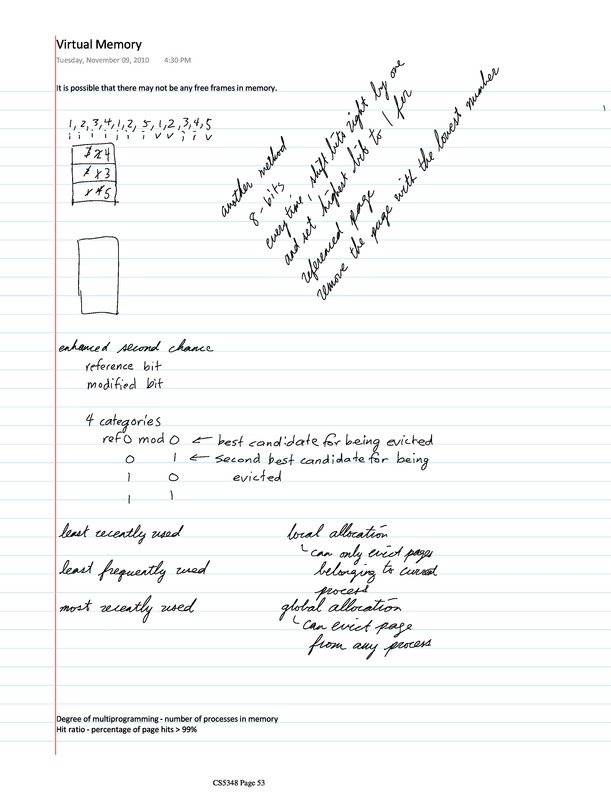 Virtual Memory
Tuesday, November 09, 2010 4:30 PM
It is possible that there may not be any free frames in memory.
1, 2, 3, 4, 1, 2, 5, 1, 2, 3, 4, 5
i i i i i i i v v i i v
4
3
5
another method
8-bits
every time, shift bits right by one
and set highest bit to 1 for
referenced page
remove the page with the lowest number
enhanced second chance
reference bit
modified bit
4 categories
ref 0 mod 0 ← best candidate for being evicted
0 1 ← second best candidate for being
1 0 evicted
1 1
least recently used
least frequently used
most recently used
local allocation
can only evict pages
belonging to current
process
global allocation
can evict page
from any process
Degree of multiprogramming - number of processes in memory
Hit ratio - percentage of page hits > 99%
CS5348 Page 53